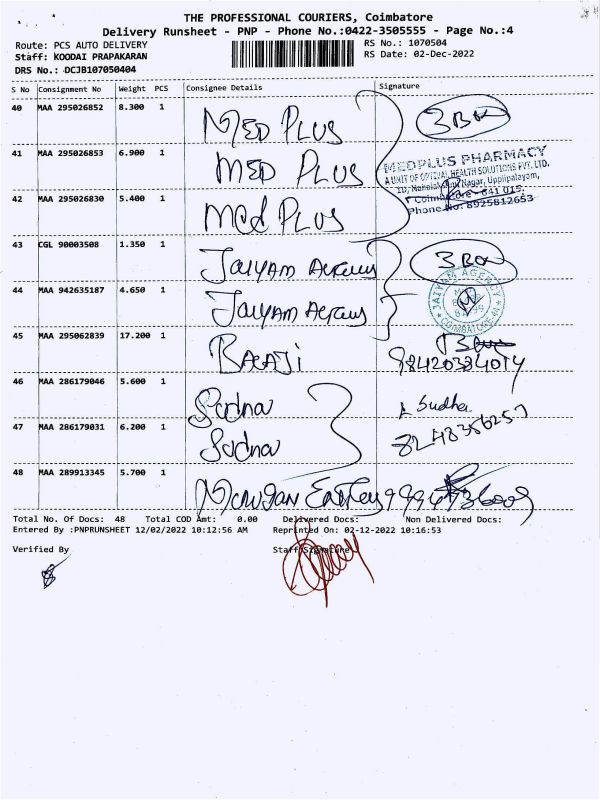 THE PROFESSIONAL COURIERS, Coimbatore
Delivery Runsheet - PNP - Phone No.:0422-3505555 - Page No.:4
Route: PCS AUTO DELIVERY
RS No.: 1070504
Staff: KOODAI PRAPAKARAN
RS Date: 02-Dec-2022
DRS No.: DCJB107050404
S No Consignment No Weight PCS Consignee Details Signature
40 MAA 295026852 8.300 1 MED PLUS 3 Box
41 MAA 295026853 6.900 1 MED PLUS
MEDPLUS PHARMACY
A UNIT OF OPTIVAL HEALTH SOLUTIONS PVT. LTD.
Nagar, Upplipalayam,
641 015.
Phone No: 8925812653
42 MAA 295026830 5.400 1 Med PLUS
43 CGL 90003508 1.350 1 JAIYAM 3 Box
44 MAA 942635187 4.650 1 JAIYAM
JAIYAM AGENCY
COIMBATORE
45 MAA 295062839 17.200 1 BALAJI
98420384074
46 MAA 286179046 5.600 1 Sudha
47 MAA 286179031 6.200 1
48 MAA 289913345 5.700 1
Total No. Of Docs: 48 Total COD Amt: 0.00 Delivered Docs: Non Delivered Docs:
Entered By :PNPRUNSHEET 12/02/2022 10:12:56 AM Reprinted On: 02-12-2022 10:16:53
Verified By Staff Signature